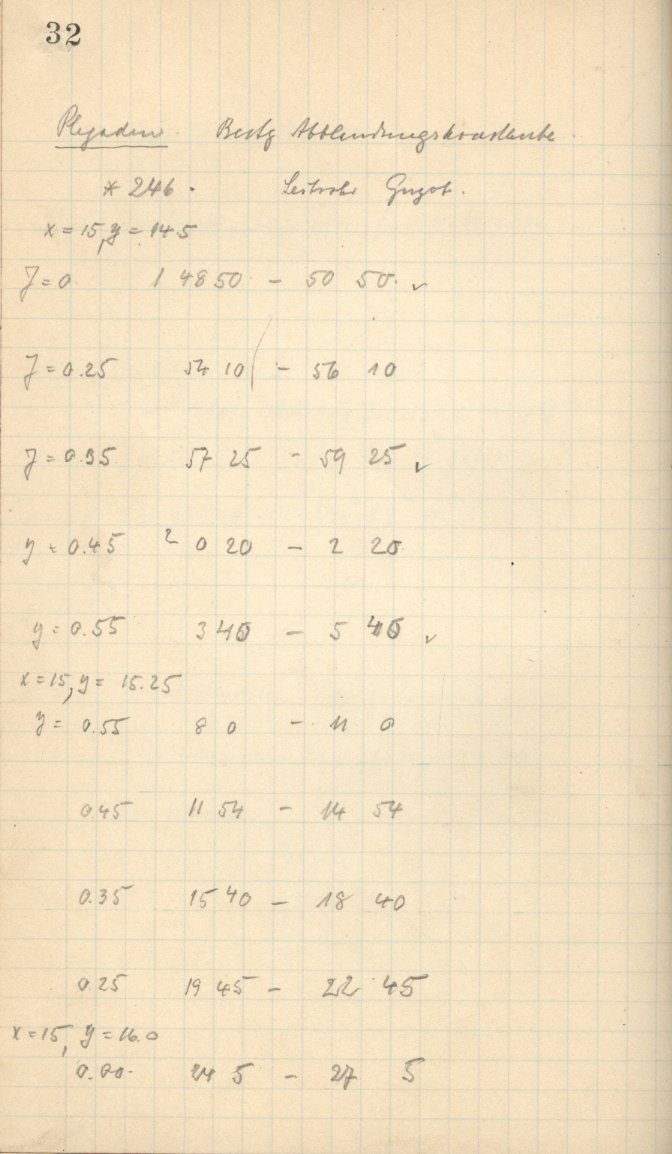 32
Plejaden. Bestg Abblendungskonstante.
* 246. Leitrohr Guzot.
x = 15, y = 14.5
J = 0. 1 48 50 - 50 50. ✓
J = 0.25 54 10 - 56 10
J = 0.35 57 25 - 59 25 ✓
y = 0.45 2 0 20 - 2 20
y = 0.55 3 40 - 5 40 ✓
x = 15, y = 15.25
y = 0.55 8 0 - 11 0
0.45 11 54 - 14 54
0.35 15 40 - 18 40
0.25 19 45 - 22 45
x = 15, y = 16.0
0.00. 24 5 - 27 5